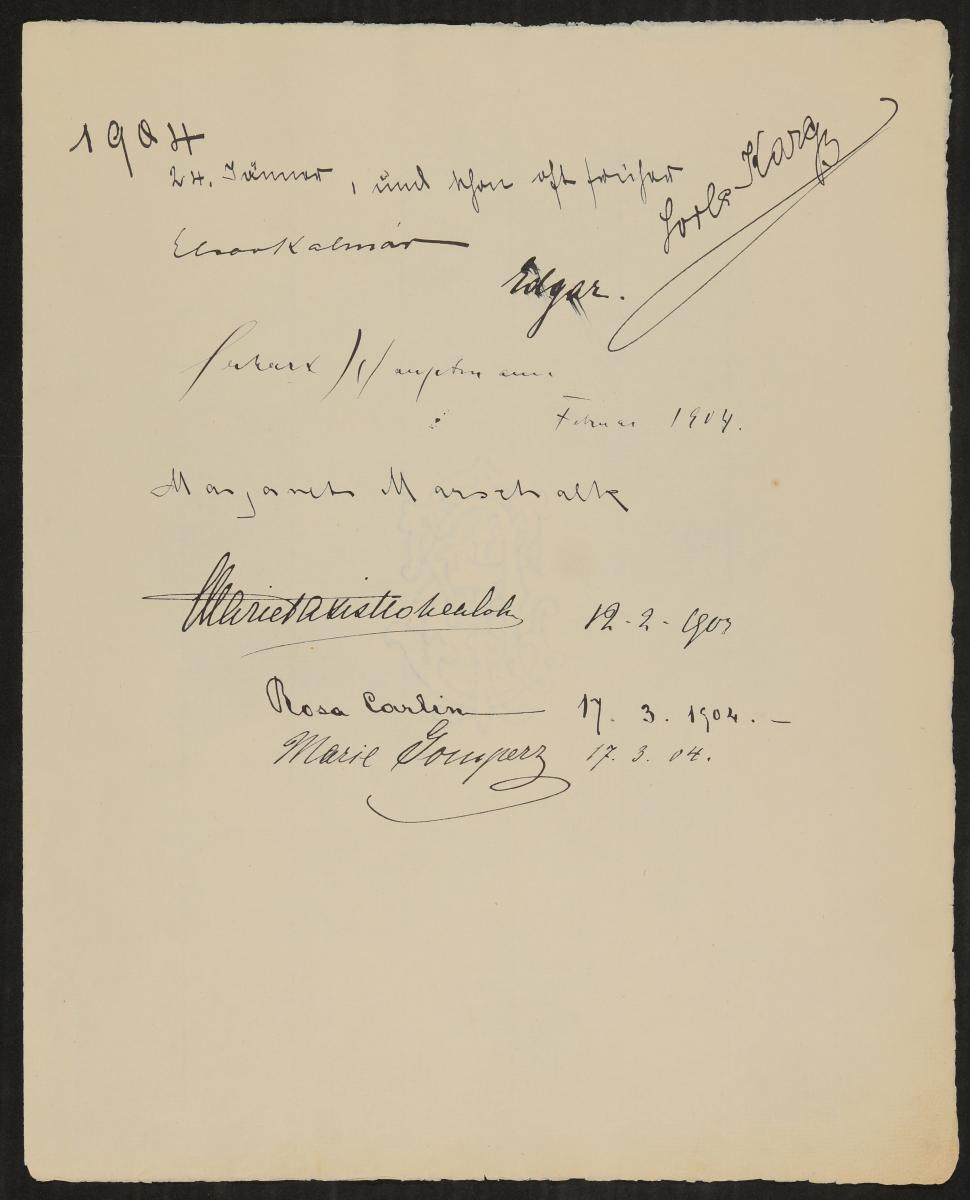 1904
24. Jänner, und schon oft früher
Karg
Elsa v Kalmár
Edgar.
Gerhart Hauptmann
Februar 1904.
Margarete Marschalk
Marie Taxis Hohenlohe 12-2-190
Rosa Carlin 17. 3. 1904. —
Marie Gomperz 17. 3. 04.